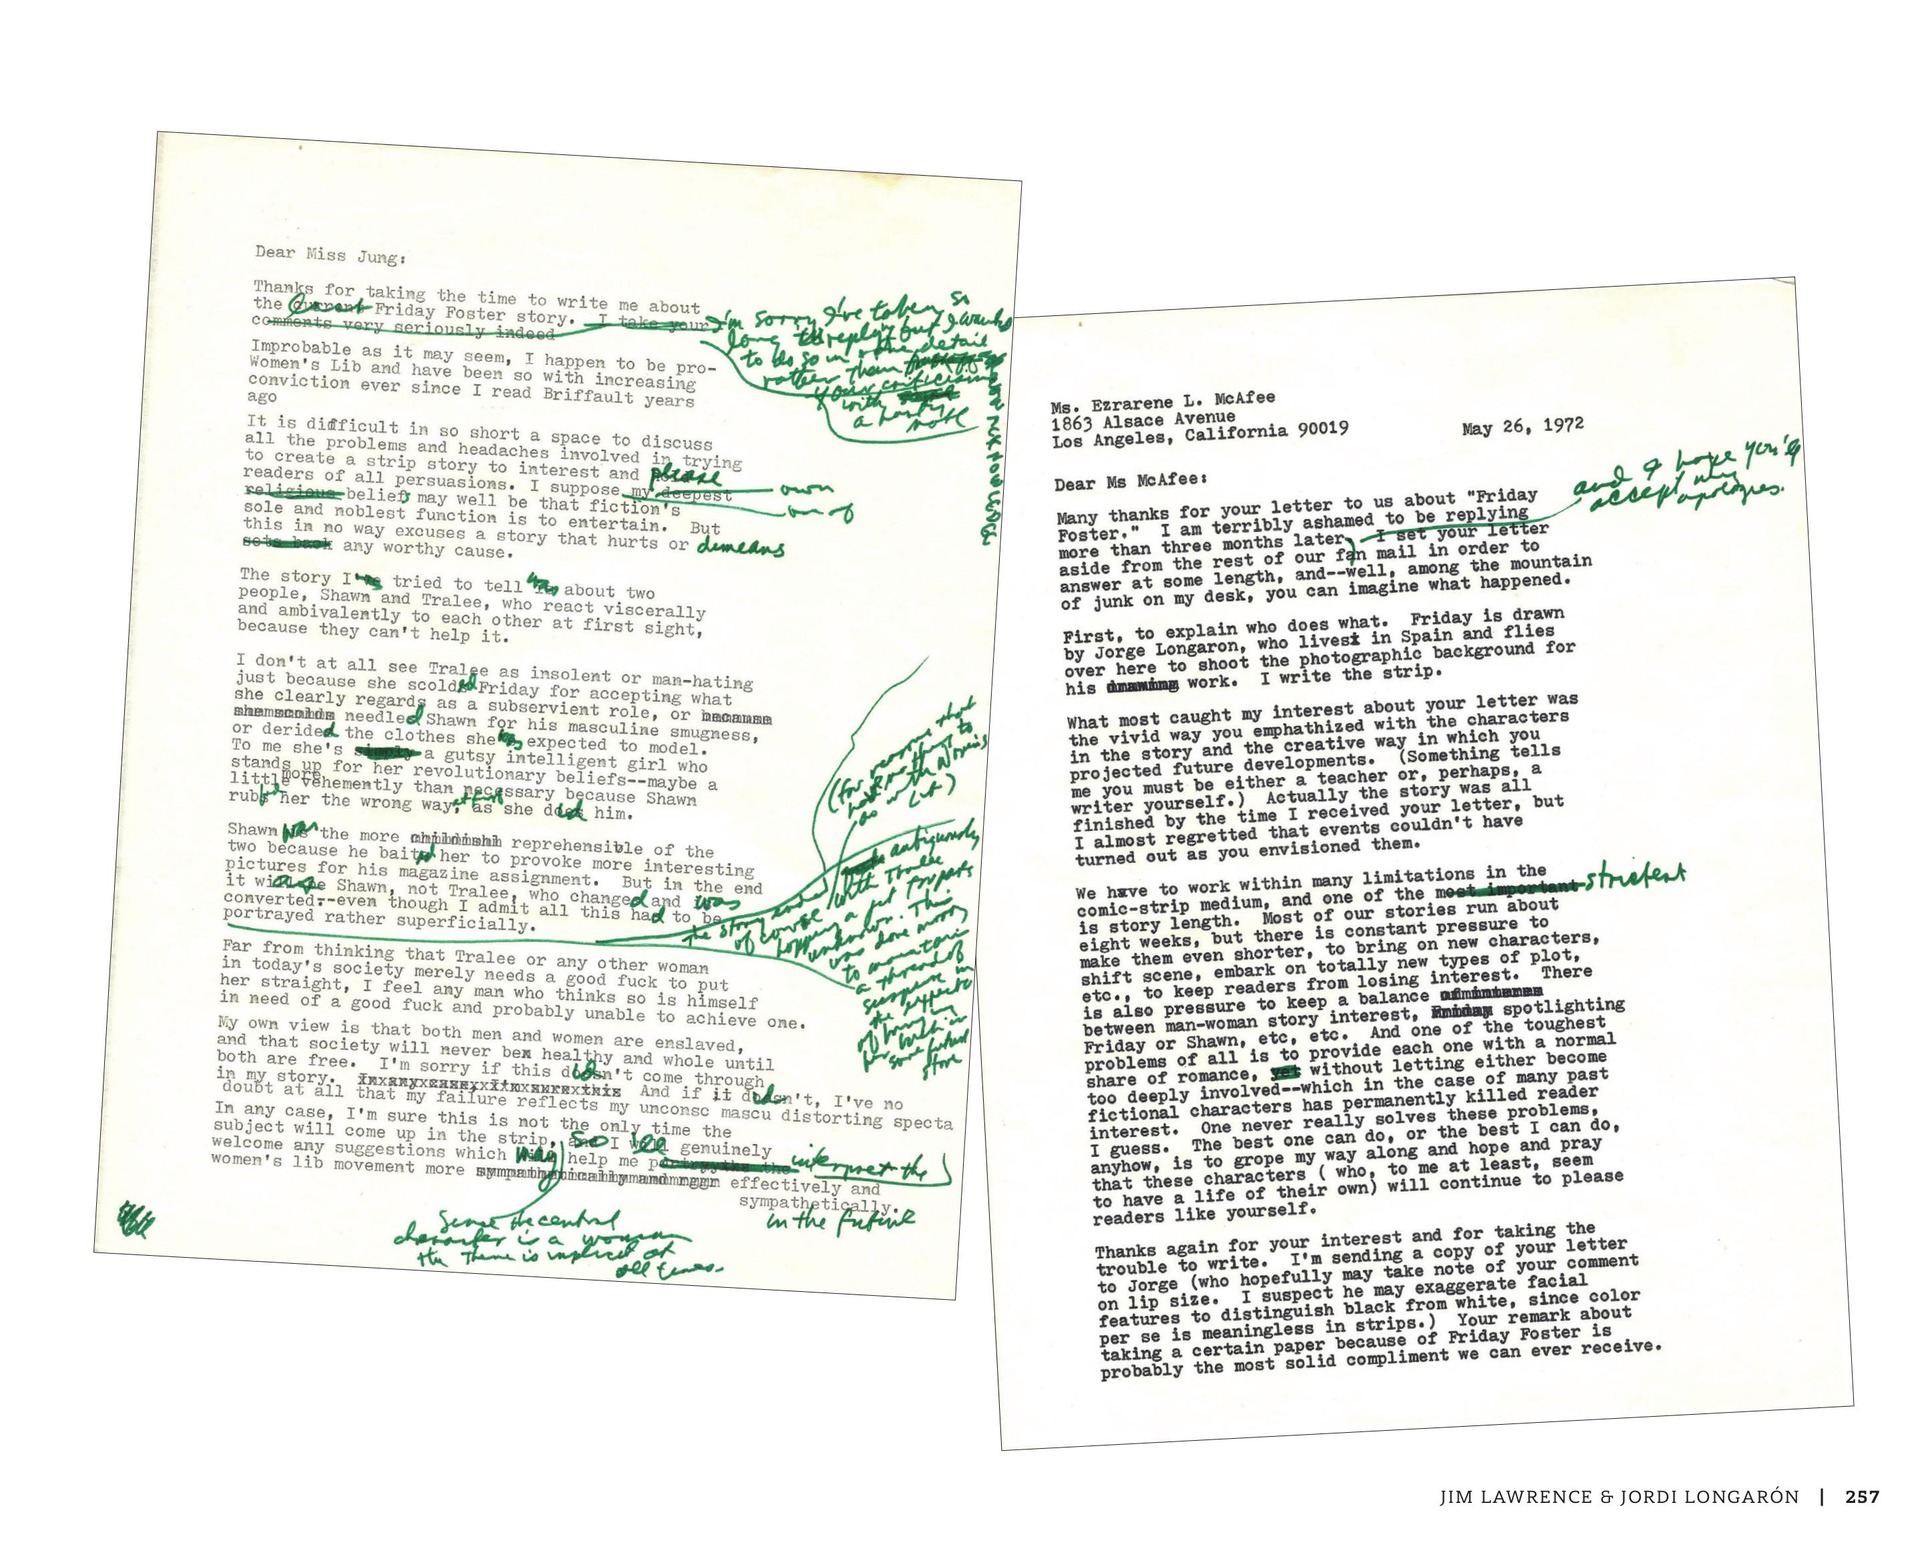 Dear Miss Jung:
Thanks for taking the time to write me about
the Current Friday Foster story. I take your
comments very seriously indeed
I'm sorry I've taken so
long to reply but I wanted
to do so in some detail
rather than
your criticisms
with
a hasty
note
ACKNOWLEDGE
Improbable as it may seem, I happen to be pro-
Women's Lib and have been so with increasing
conviction ever since I read Briffault years
ago
It is difficult in so short a space to discuss
all the problems and headaches involved in trying
to create a strip story to interest and please
readers of all persuasions. I suppose my deepest own
religious beliefs may well be that fiction's one of
sole and noblest function is to entertain. But
this in no way excuses a story that hurts or demeans
sets back any worthy cause.
The story I've tried to tell was about two
people, Shawn and Tralee, who react viscerally
and ambivalently to each other at first sight,
because they can't help it.
I don't at all see Tralee as insolent or man-hating
just because she scolded Friday for accepting what
she clearly regards as a subservient role, or because
she scolds needled Shawn for his masculine smugness,
or derided the clothes she was expected to model.
To me she's simply a gutsy intelligent girl who
stands up for her revolutionary beliefs--maybe a
little more vehemently than necessary because Shawn
rubs her the wrong way, at first, as she did him.
(for reasons that
had something to
do with Norris
Lit)
Shawn was the more childish reprehensible of the
two because he baited her to provoke more interesting
pictures for his magazine assignment. But in the end
it was Shawn, not Tralee, who changed and was
converted--even though I admit all this had to be
portrayed rather superficially.
the story ended ambiguously
of course with Tralee
hopping a jet for parts
unknown. This
was done mostly
to maintain
a thread of
suspense in
the expectation
of bringing
her back in
some future
story
Far from thinking that Tralee or any other woman
in today's society merely needs a good fuck to put
her straight, I feel any man who thinks so is himself
in need of a good fuck and probably unable to achieve one.
My own view is that both men and women are enslaved,
and that society will never be healthy and whole until
both are free. I'm sorry if this didn't come through
in my story. In any case, I'm sure this And if it didn't, I've no
doubt at all that my failure reflects my unconsc mascu distorting specta
In any case, I'm sure this is not the only time the
subject will come up in the strip, so I'll genuinely
welcome any suggestions which may help me portray the the interpret the
women's lib movement more sympathetically and effectively and
sympathetically.
in the future
Since the central
character is a woman
the theme is implicit at
all times.
Ms. Ezrarene L. McAfee
1863 Alsace Avenue
Los Angeles, California 90019 May 26, 1972
Dear Ms McAfee:
Many thanks for your letter to us about "Friday
Foster." I am terribly ashamed to be replying
more than three months later, and I hope you'll
accept my
apologies.
I set your letter
aside from the rest of our fan mail in order to
answer at some length, and--well, among the mountain
of junk on my desk, you can imagine what happened.
First, to explain who does what. Friday is drawn
by Jorge Longaron, who lives in Spain and flies
over here to shoot the photographic background for
his drawing work. I write the strip.
What most caught my interest about your letter was
the vivid way you emphathized with the characters
in the story and the creative way in which you
projected future developments. (Something tells
me you must be either a teacher or, perhaps, a
writer yourself.) Actually the story was all
finished by the time I received your letter, but
I almost regretted that events couldn't have
turned out as you envisioned them.
We have to work within many limitations in the
comic-strip medium, and one of the most important strictest
is story length. Most of our stories run about
eight weeks, but there is constant pressure to
make them even shorter, to bring on new characters,
shift scene, embark on totally new types of plot,
etc., to keep readers from losing interest. There
is also pressure to keep a balance
between man-woman story interest, Friday spotlighting
Friday or Shawn, etc, etc. And one of the toughest
problems of all is to provide each one with a normal
share of romance, yet without letting either become
too deeply involved--which in the case of many past
fictional characters has permanently killed reader
interest. One never really solves these problems,
I guess. The best one can do, or the best I can do,
anyhow, is to grope my way along and hope and pray
that these characters ( who, to me at least, seem
to have a life of their own) will continue to please
readers like yourself.
Thanks again for your interest and for taking the
trouble to write. I'm sending a copy of your letter
to Jorge (who hopefully may take note of your comment
on lip size. I suspect he may exaggerate facial
features to distinguish black from white, since color
per se is meaningless in strips.) Your remark about
taking a certain paper because of Friday Foster is
probably the most solid compliment we can ever receive.
JIM LAWRENCE & JORDI LONGARÓN | 257